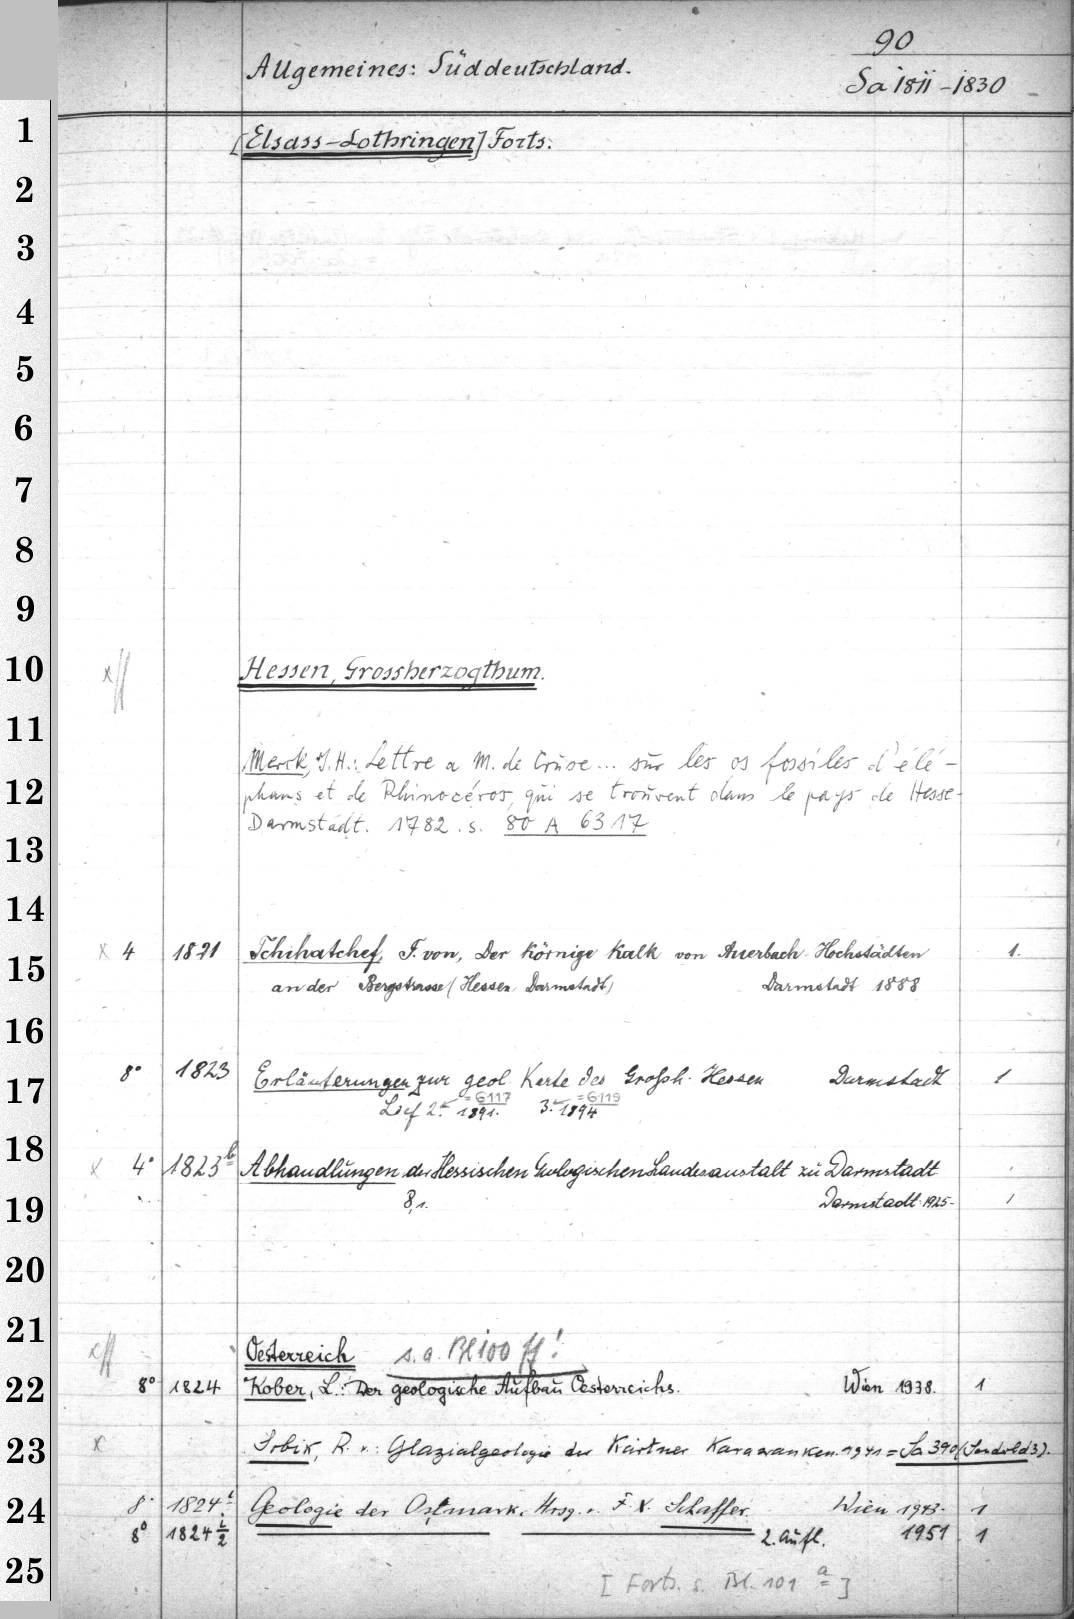 90
Allgemeines: Süddeutschland.
Sa 1811-1830
1
[Elsass-Lothringen] Forts.
2
3
4
5
6
7
8
9
10
x ff
Hessen, Grossherzogthum.
11
Merck, J. H.: Lettre a M. de Cruse... sur les os fossiles d'élé-
12
phans et de Rhinocéros, qui se trouvent dans le pays de Hesse-
Darmstadt. 1782. s. 80 A 6317
13
14
x 4 1821 Tchihatchef, F. von, Der körnige Kalk von Auerbach-Hochstädten 1.
15
an der Bergstrasse (Hessen Darmstadt) Darmstadt 1888
16
8° 1823 Erläuterungen zur geol. Karte des Grossh. Hessen Darmstadt 1
17
= 6117 = 6119
Lief 2. 1891. 3. 1894
18
x 4° 1823 b Abhandlungen der Hessischen Geologischen Landesanstalt zu Darmstadt
19
8,1. Darmstadt 1925- 1
20
21
x ff
Oesterreich s. a. Bl 100 ff!
22
8° 1824 Kober, L.: Der geologische Aufbau Oesterreichs. Wien 1938. 1
23
x Srbik, R. v.: Glazialgeologie der Kärtner Karawanken. 1941 = Sa 390 (Sonderbd 3).
24
8° 1824 i Geologie der Ostmark. Hrsg. v. F. X. Schaffer. Wien 1943. 1
8° 1824 i/2 2. Aufl. 1951. 1
25
[Forts. s. Bl. 101 a]